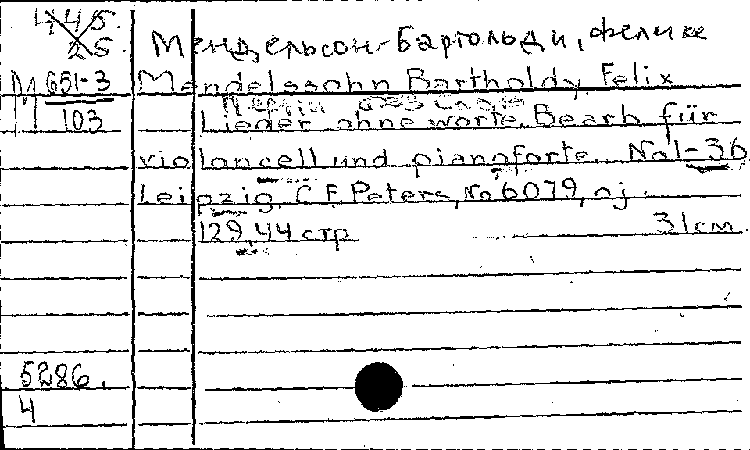 445.
25.
Мендельсон-Бартольди, Феликс
М 651-3
103
Mendelssohn Bartholdy, Felix
Песни без слов
Lieder ohne worte. Bearb für
violancell und pianoforte. No 1-36
Leipzig, C. F. Peters, No 6079, oj.
129,44 стр 31 см.
5286.
4